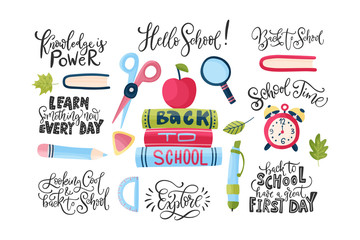 Knowledge is
POWER
Hello School!
Back to School
LEARN
Something new
EVERY DAY
School Time
BACK
TO
SCHOOL
Looking Cool
& back to School
Explore
Back to
SCHOOL
have a great
FIRST DAY